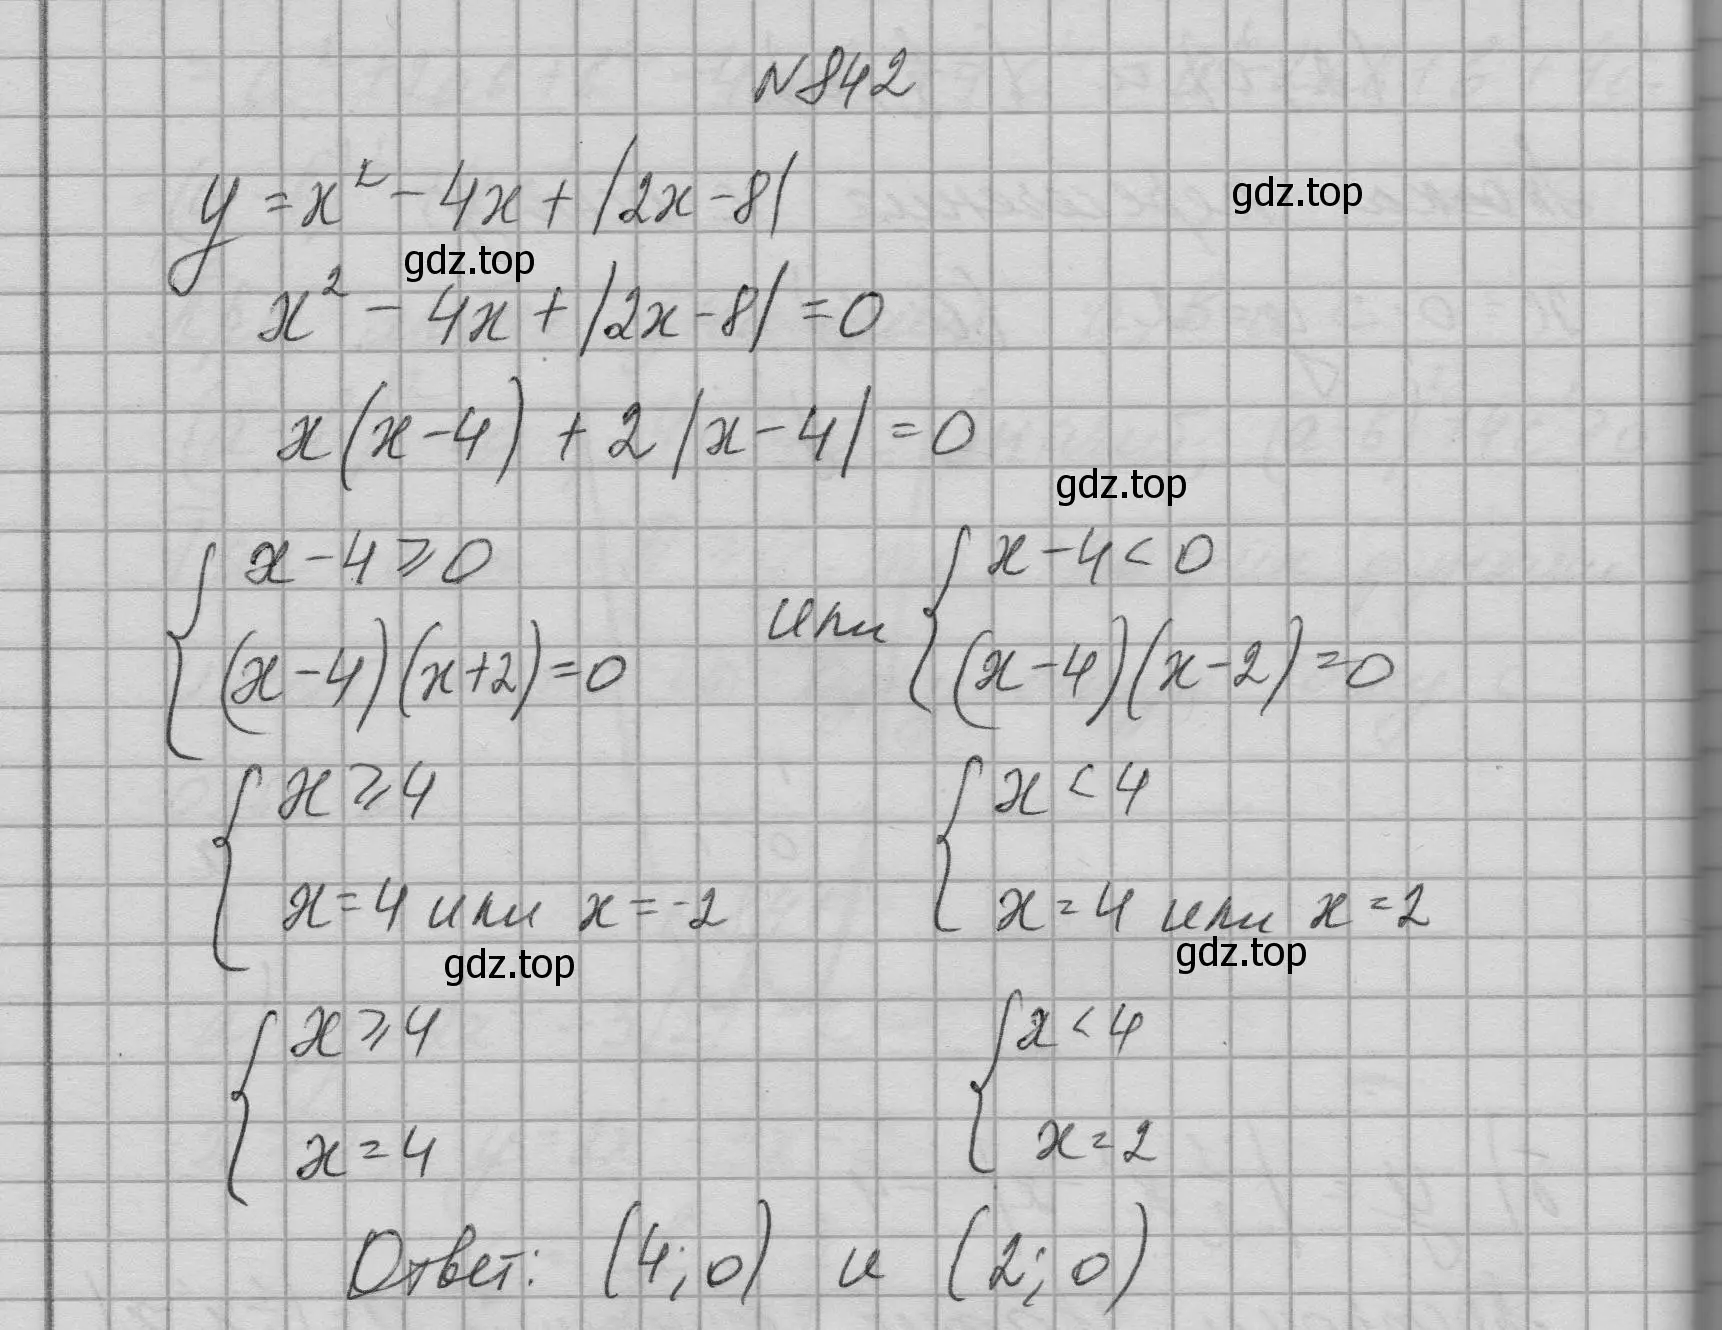 N842
y = x² - 4x + |2x - 8|
gdz.top
gdz.top
x² - 4x + |2x - 8| = 0
x(x - 4) + 2|x - 4| = 0
gdz.top
{ x - 4 ⩾ 0
(x - 4)(x + 2) = 0
или
{ x - 4 < 0
(x - 4)(x - 2) = 0
{ x ⩾ 4
x = 4 или x = -2
{ x < 4
x = 4 или x = 2
gdz.top
gdz.top
{ x ⩾ 4
x = 4
{ x < 4
x = 2
Ответ: (4; 0) и (2; 0)